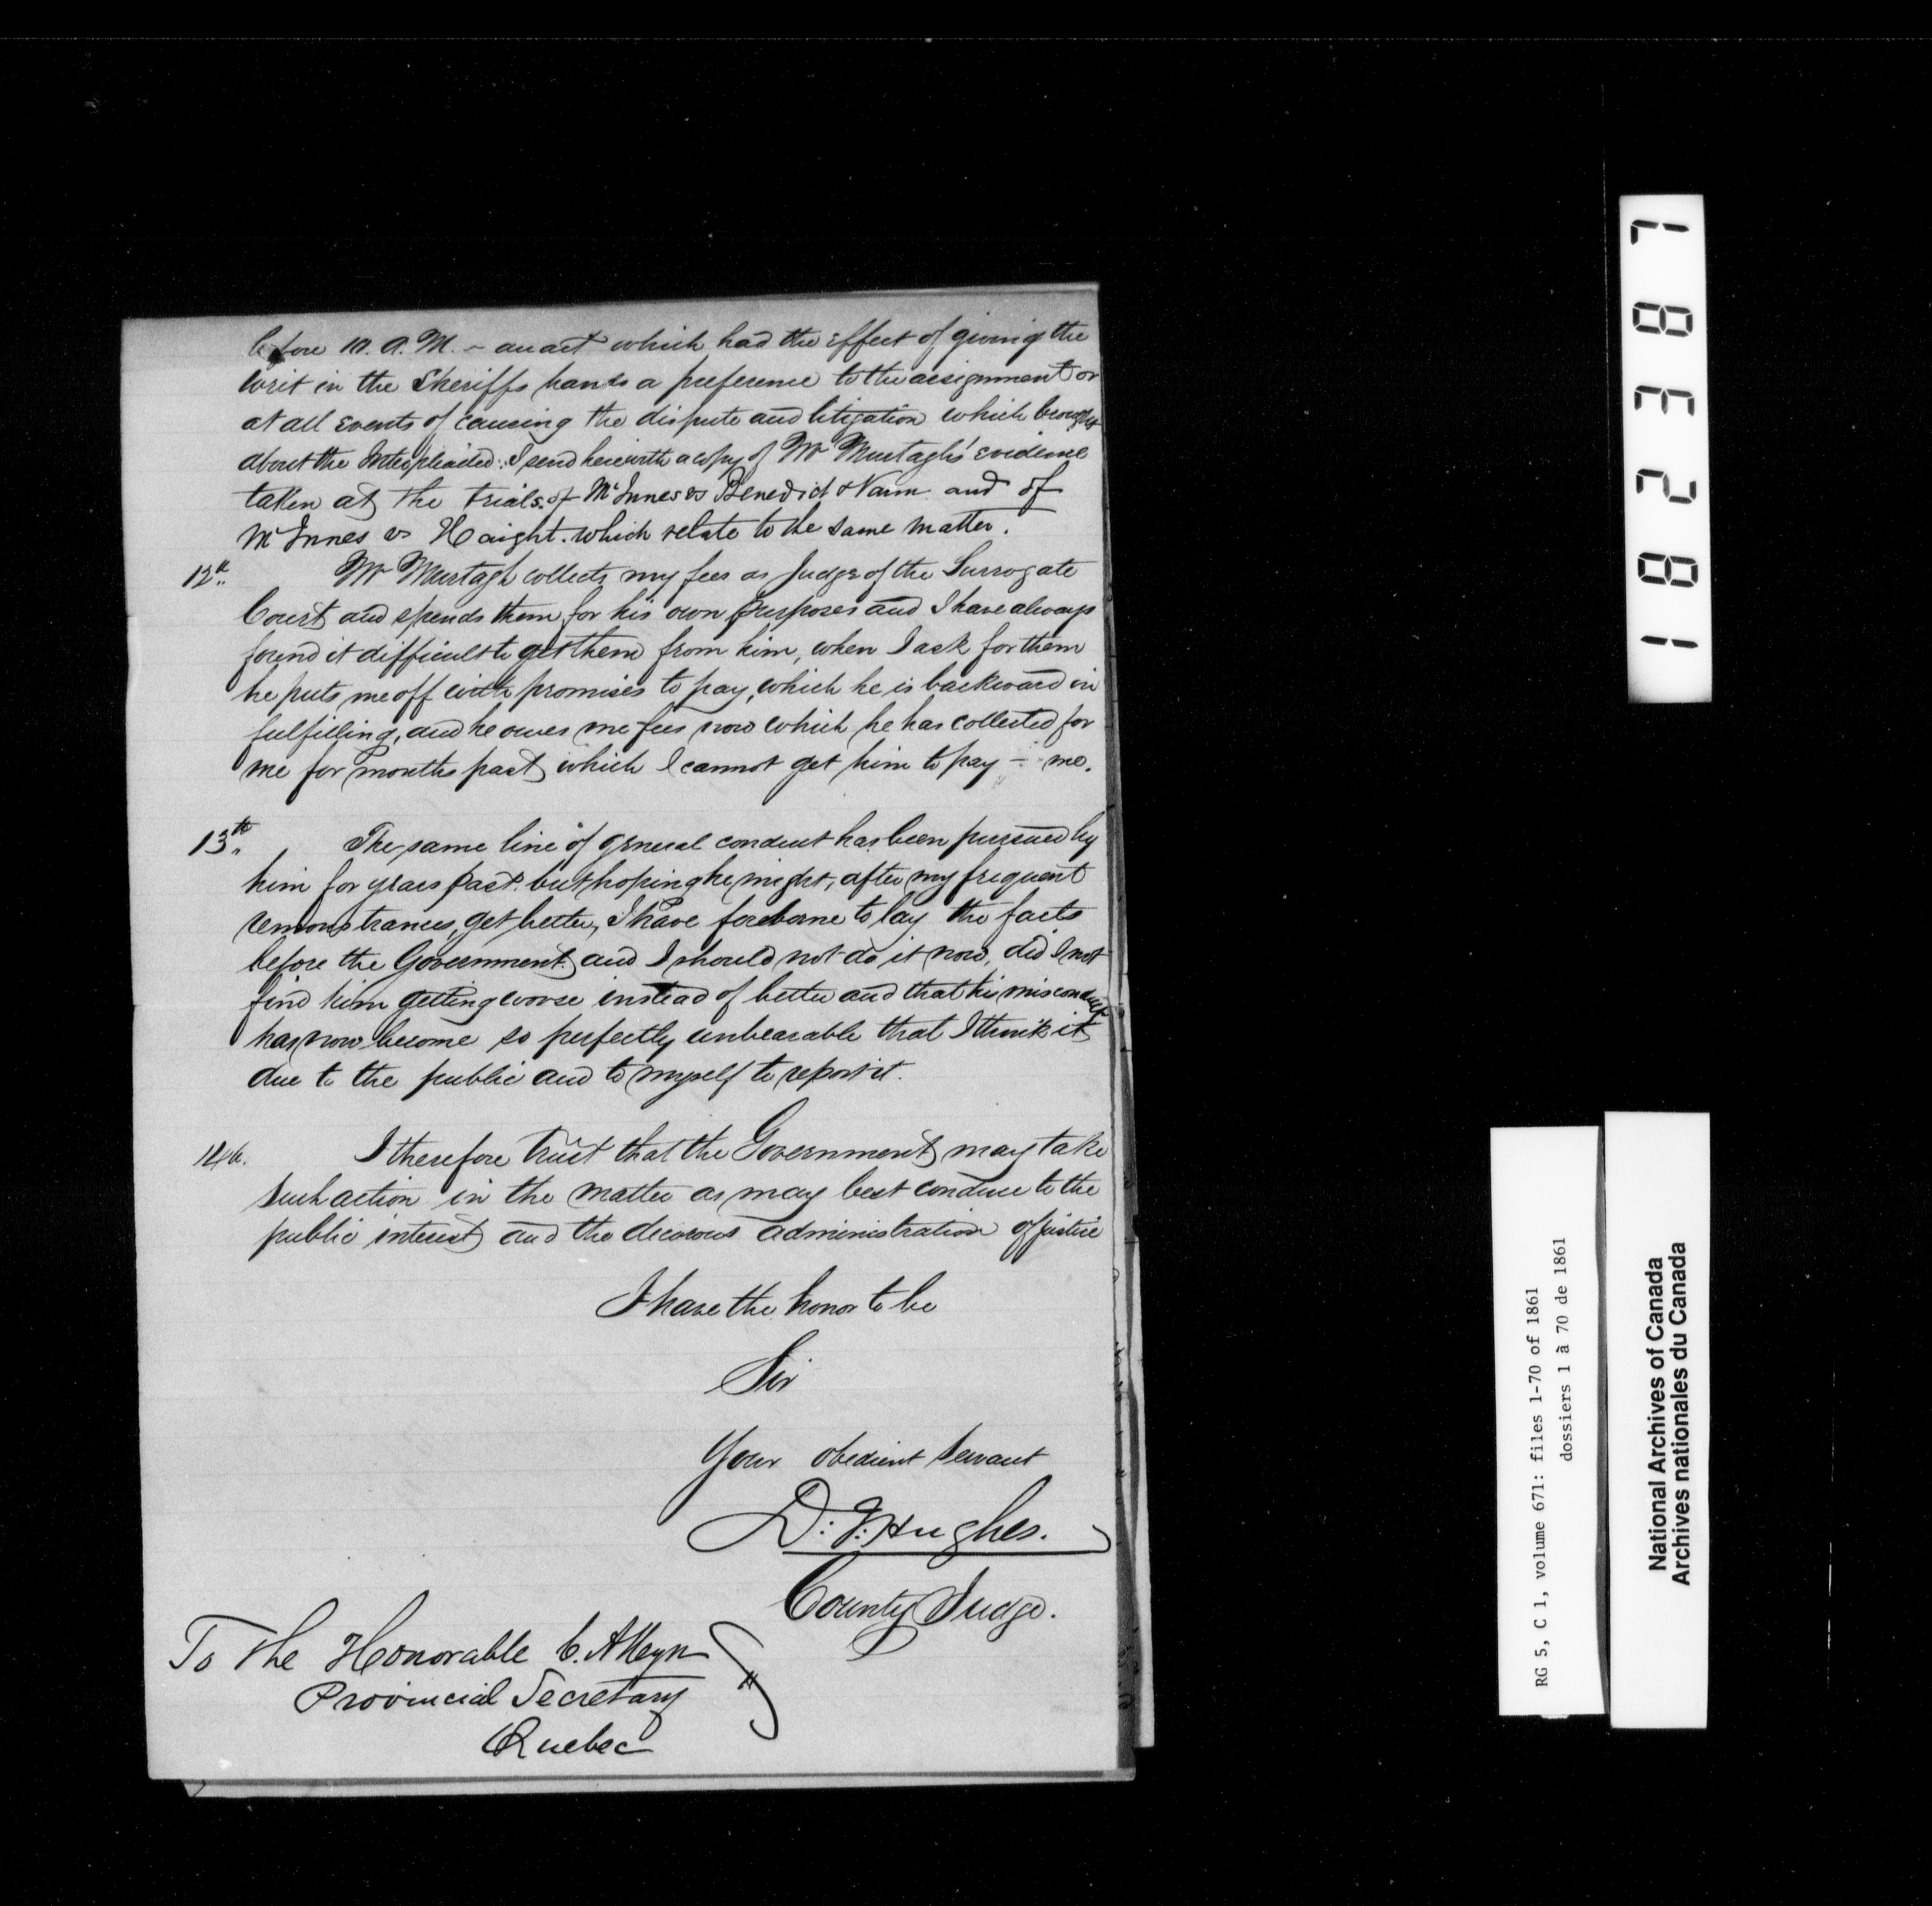 before 10. A.M. - an act which had the effect of giving the
writ in the Sheriffs hands a preference to the assignment or
at all events of causing the dispute and litigation which brought
about the Interpleader. I send herewith a copy of Mr Murtagh's evidence
taken at the trials of McInnes vs Benedict & Vann and of
McInnes vs Haight. which relate to the same matter.
12th Mr Murtagh collects my fees as Judge of the Surrogate
Court and spends them for his own purposes and I have always
found it difficult to get them from him, when I ask for them
he puts me off with promises to pay, which he is backward in
fulfilling, and he owes me fees now which he has collected for
me for months past which I cannot get him to pay - me.
13th The same line of general conduct has been pursued by
him for years past. but hoping he might, after my frequent
remonstrances, get better, I have foreborne to lay the facts
before the Government. and I should not do it now, did I not
find him getting worse instead of better and that his misconduct
has now become so perfectly unbearable that I think it
due to the public and to myself to report it.
14th. I therefore trust that the Government may take
such action in the matter as may best conduce to the
public interest and the decorous administration of justice
I have the honor to be
Sir
Your obedient servant
D. J. Hughes.
County Judge.
To The Honorable C. Alleyn
Provincial Secretary
Quebec
182387
RG 5, C 1, volume 671: files 1-70 of 1861
dossiers 1 à 70 de 1861
National Archives of Canada
Archives nationales du Canada